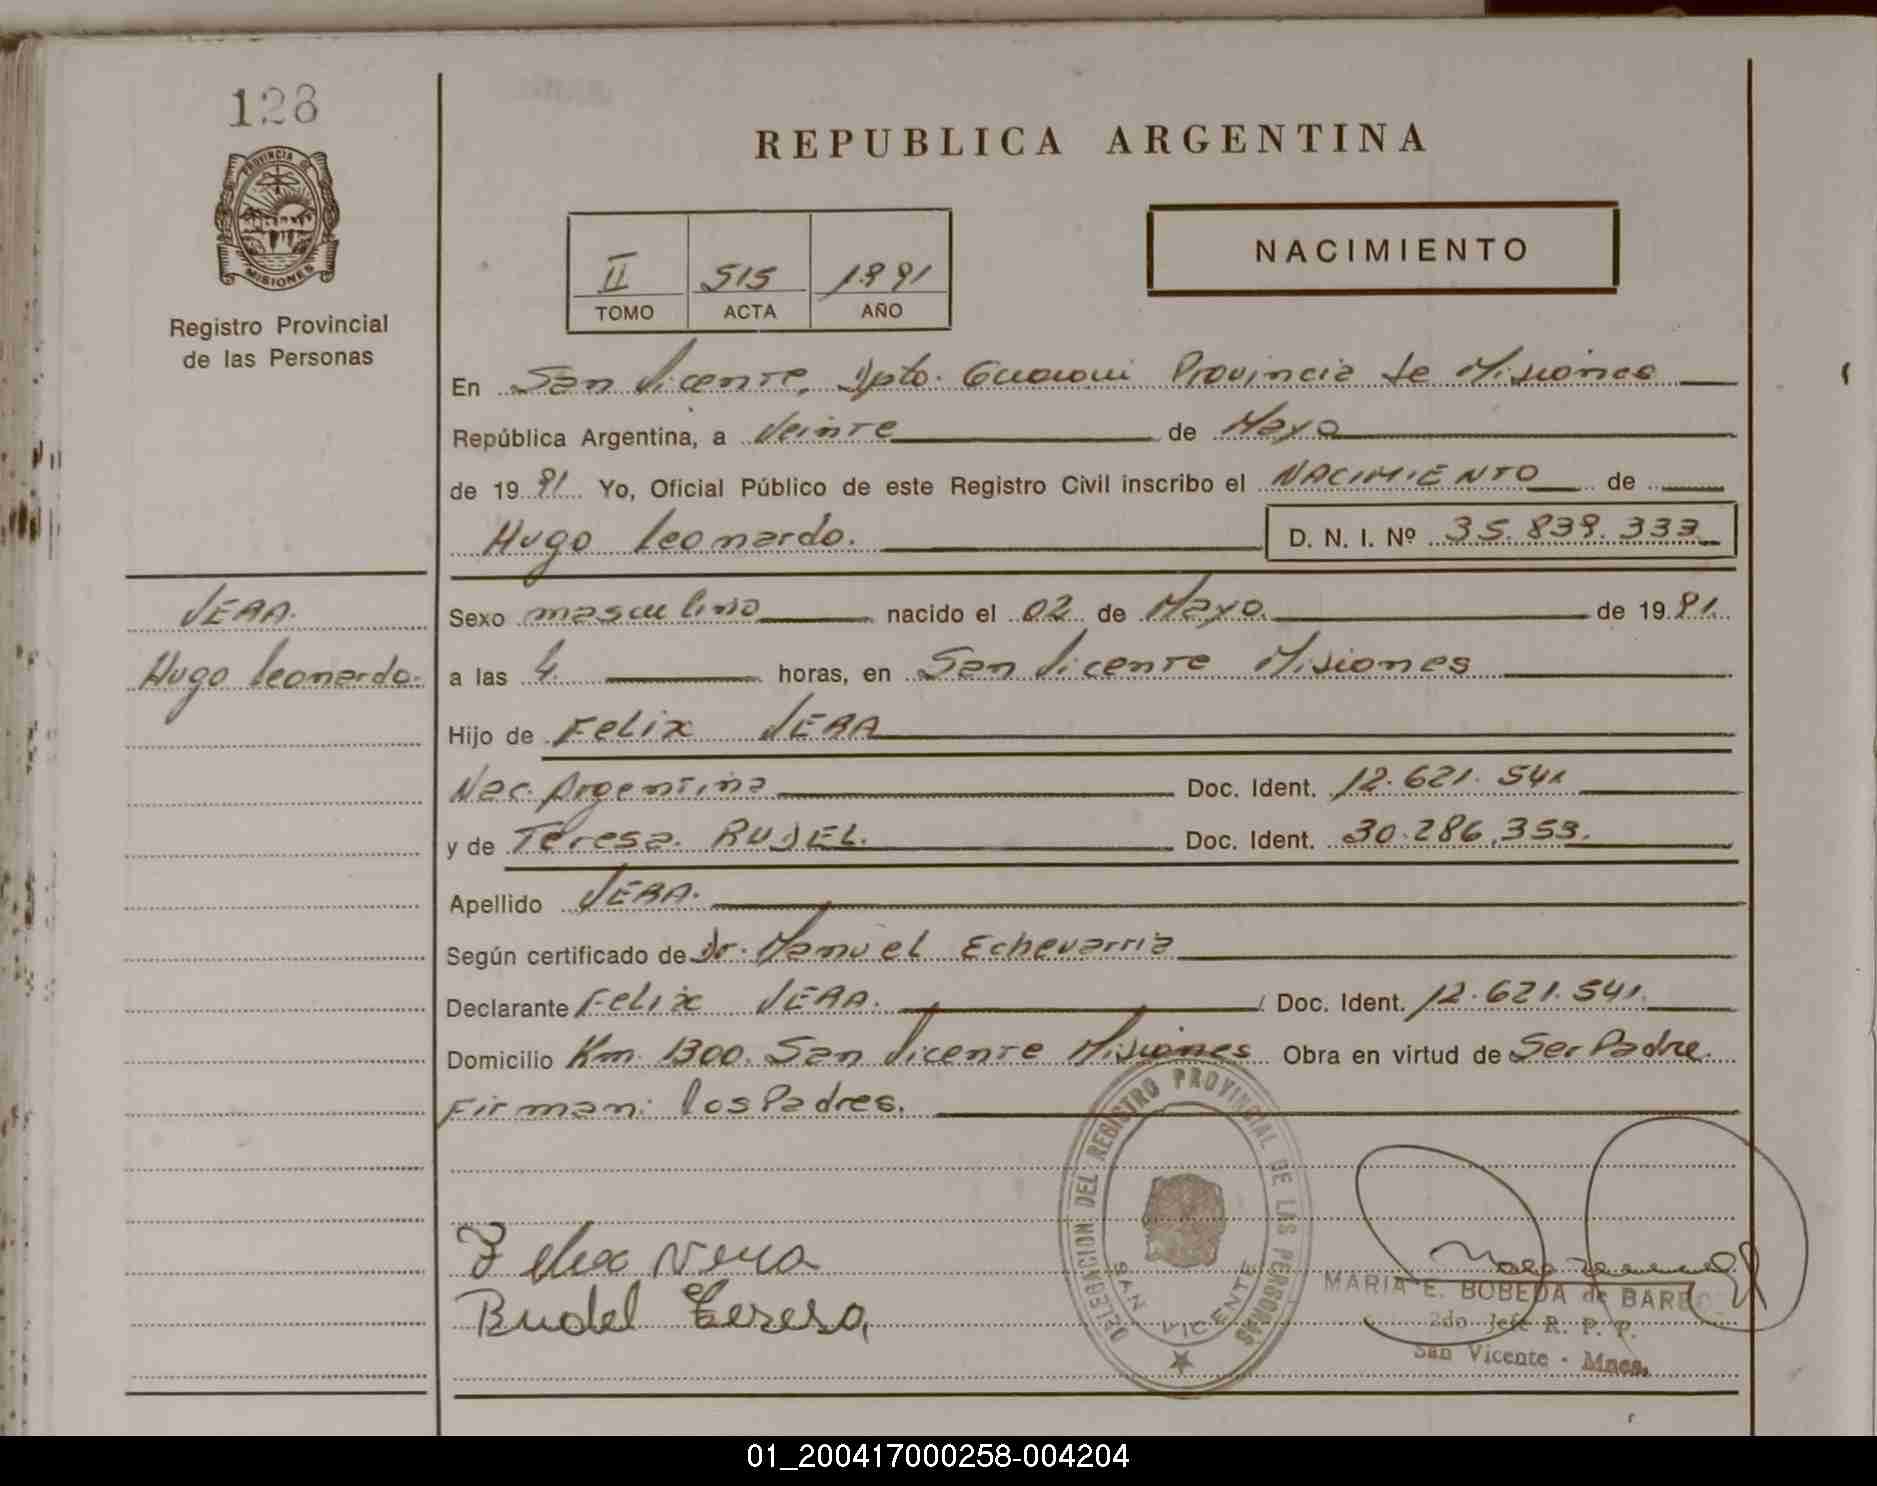 128
PROVINCIA DE
MISIONES
Registro Provincial
de las Personas
REPUBLICA ARGENTINA
NACIMIENTO
II 515 1991
TOMO ACTA AÑO
En San Vicente, Dpto. Guarani Provincia de Misiones
República Argentina, a Veinte de Mayo
de 1991 Yo, Oficial Público de este Registro Civil inscribo el NACIMIENTO de
Hugo Leonardo. D. N. I. Nº 35.839.333
VERA.
Hugo Leonardo.
Sexo masculino nacido el 02 de Mayo. de 1991.
a las 4 horas, en San Vicente Misiones
Hijo de Felix VERA
Nac. Argentina Doc. Ident. 12.621.541
y de Teresa. BUDEL. Doc. Ident. 30.286.353.
Apellido VERA.
Según certificado de Dr. Manuel Echevarria
Declarante Felix VERA. Doc. Ident. 12.621.541.
Domicilio Km. 1300. San Vicente Misiones Obra en virtud de Ser Padre.
Firman: los Padres.
DELEGACION DEL REGISTRO PROVINCIAL DE LAS PERSONAS
SAN VICENTE
Felix Vera
Budel Teresa,
MARIA E. BOBEDA de
2do Jefe R. P. P.
San Vicente - Mnes.
01_200417000258-004204